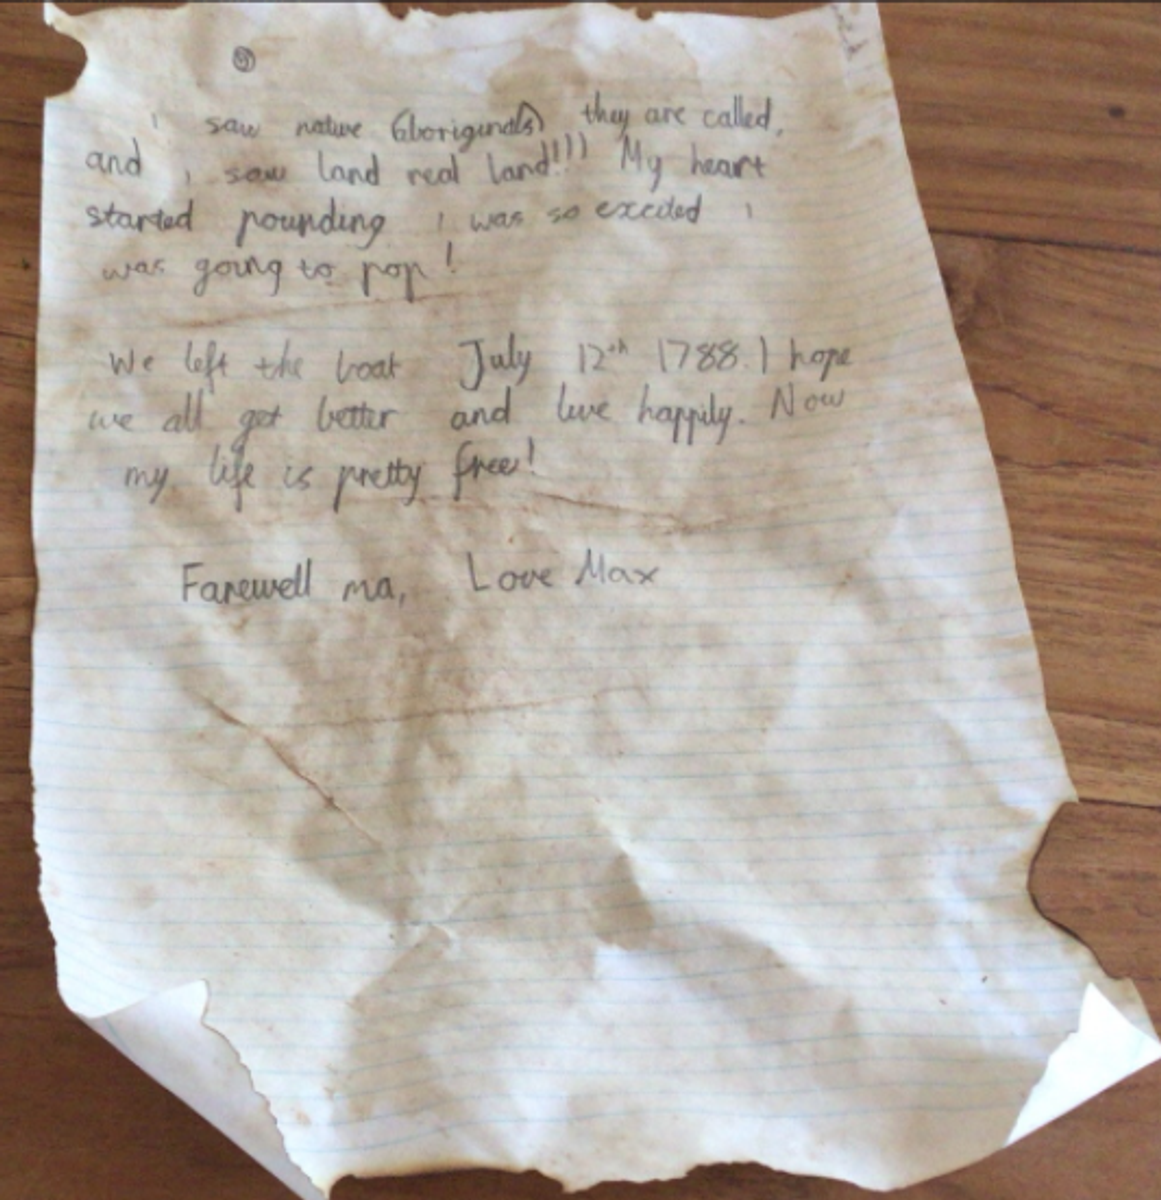 I saw native (Aboriginals) they are called,
and I saw land real land!!! My heart
started pounding I was so excited I
was going to pop!
We left the boat July 12th 1788. I hope
we all get better and live happily. Now
my life is pretty free!
Farewell ma, Love Max